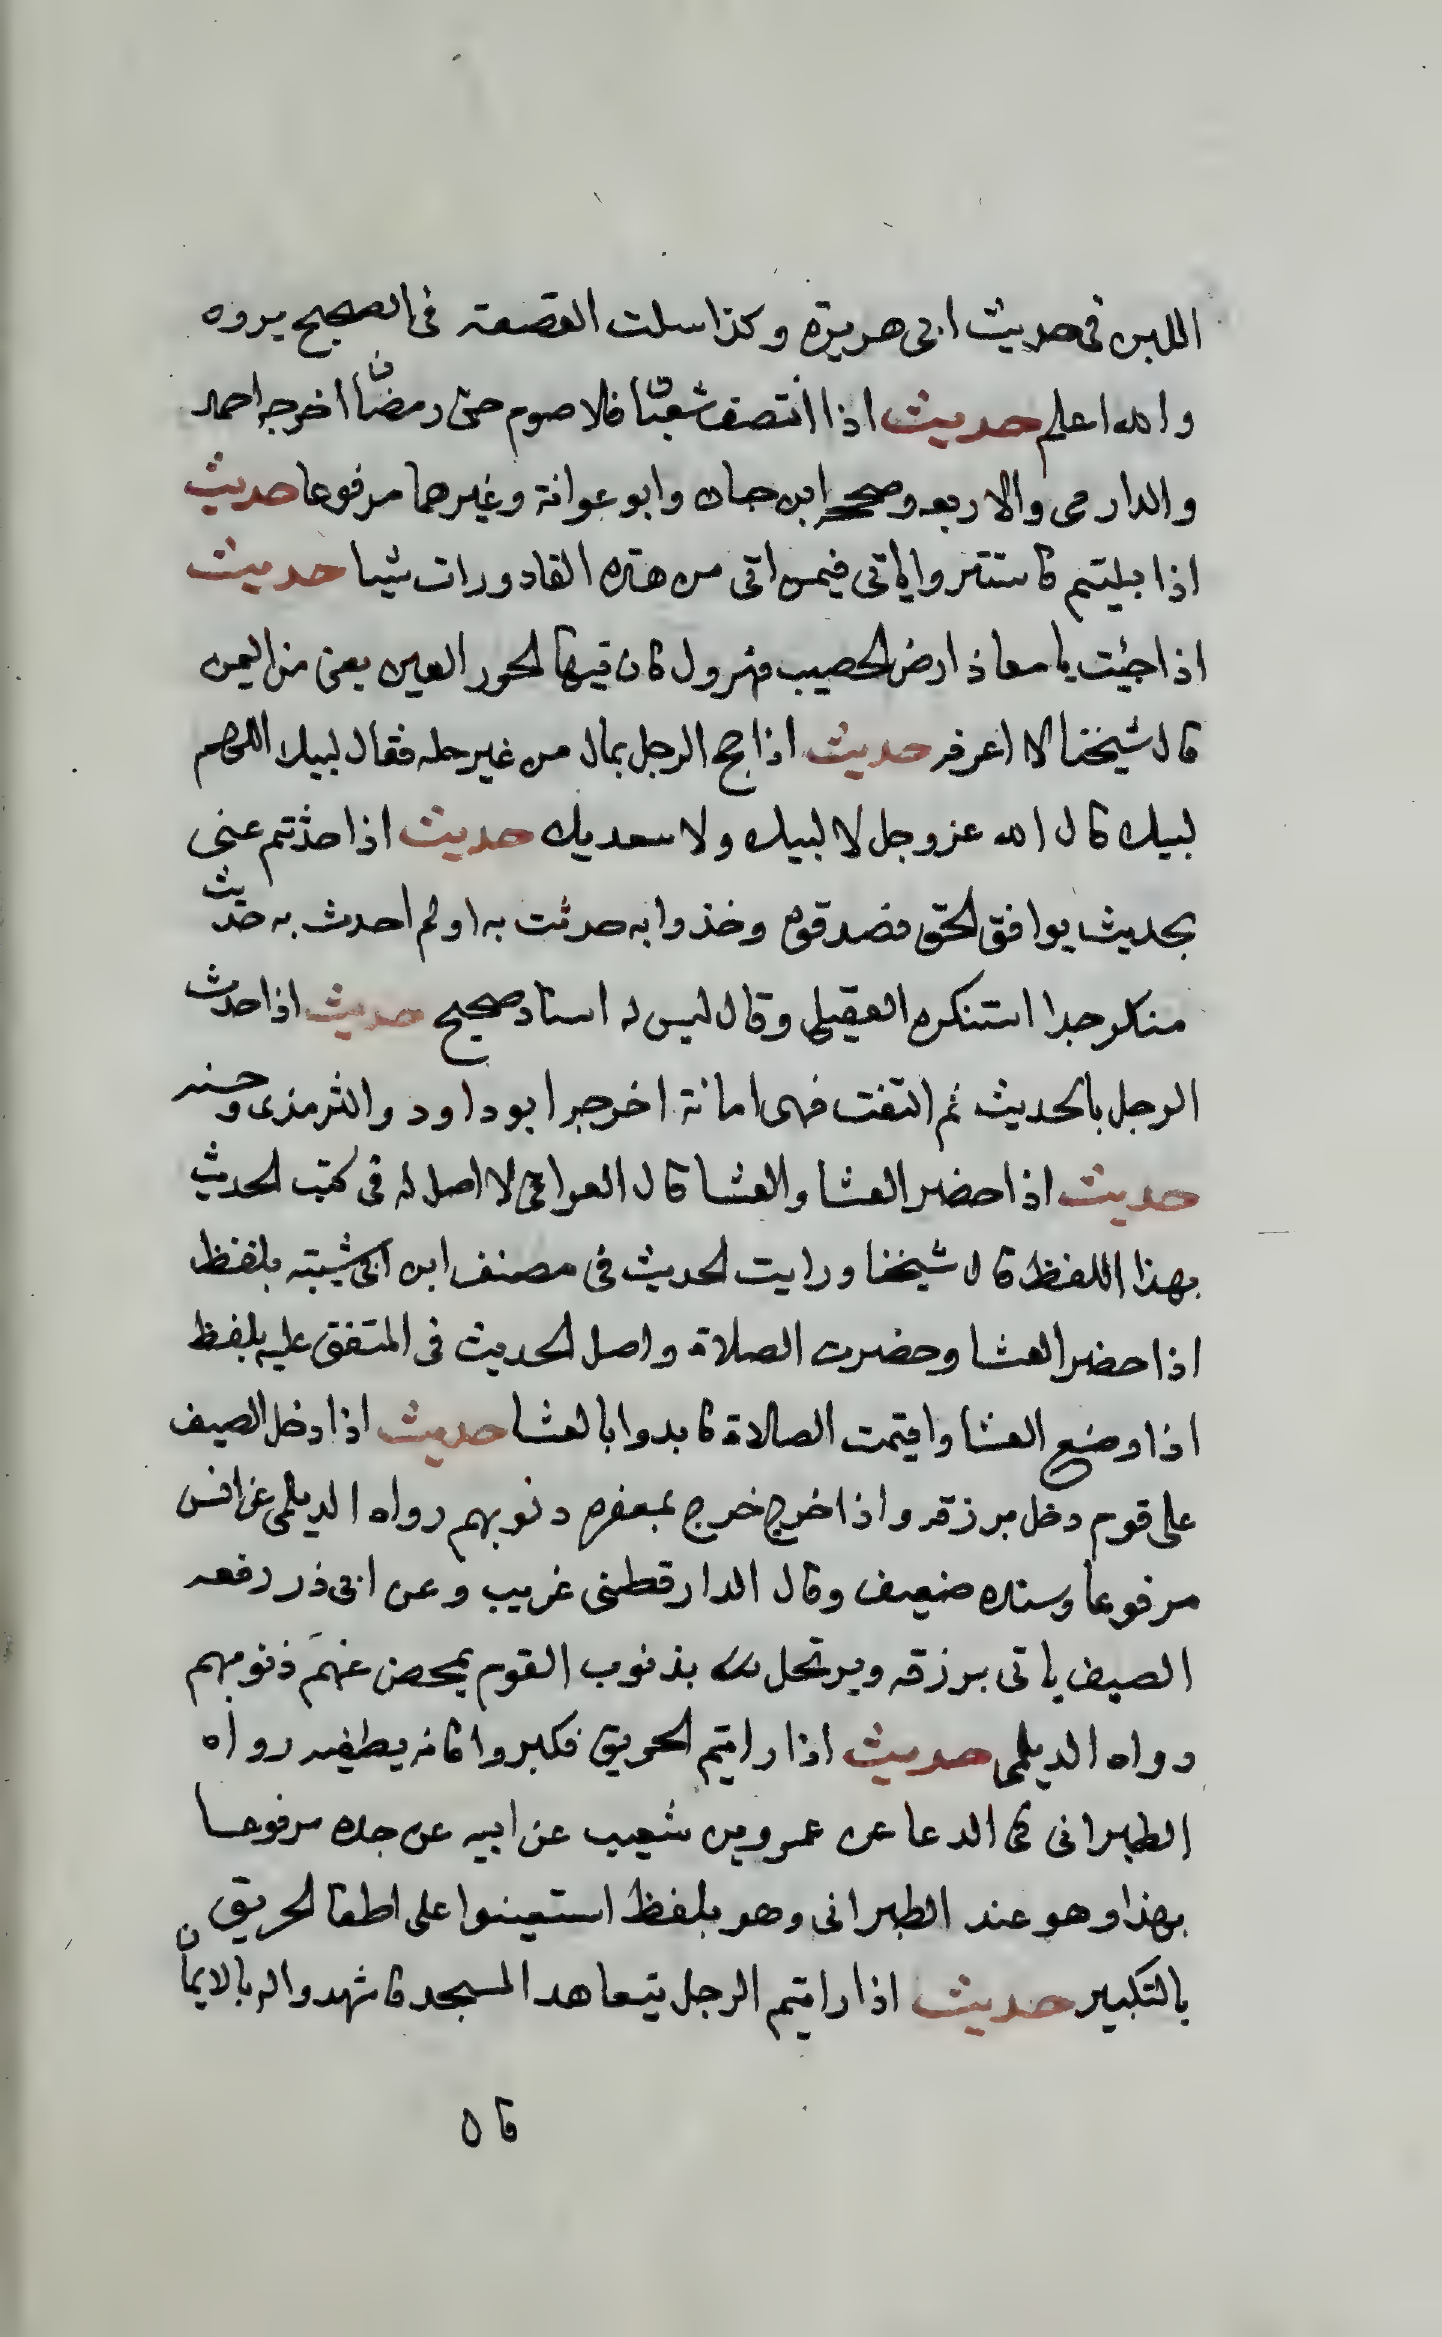 اللبن فى حديث ابى هريرة وكذا سلت القصعة فى الصحيح يروه
والله اعلم حديث اذا انتصف شعبان فلا صوم حتى رمضان اخرجه احمد
والدارمى والاربعه وصححه ابن حبان وابو عوانة وغيرهما مرفوعا حديث
اذا بليتم فاستتروا ياتى فيمن اتى من هذه القادورات شيا حديث
اذا جئت يا معاذ ارض الحصيب فهرول فان فيها الحور العين يعنى من اليمن
قال شيخنا لا اعرفه حديث اذا حج الرجل بمال من غير حله فقال لبيك اللهم
لبيك قال الله عز وجل لا لبيك ولا سعديك حديث اذا حدثتم عنى
بحديث يوافق الحق فصدقوه وخذوا به حدثت به او لم احدث به حديث
منكر جدا استنكره العقيلى وقال ليس له اسناد صحيح حديث اذا حدث
الرجل بالحديث ثم التفت فهى امانة اخرجه ابو داود والترمذى وحسنه
حديث اذا حضر العشا والعشا قال العراقى لا اصل له فى كتب الحديث
بهذا اللفظ قال شيخنا ورايت الحديث فى مصنف ابن ابى شيبة بلفظ
اذا حضر العشا وحضرت الصلاة واصل الحديث فى المتفق عليه بلفظ
اذا وضع العشا واقيمت الصلاة فابدوا بالعشا حديث اذا دخل الضيف
على قوم دخل برزقه واذا خرج خرج بمغفرة دنوبهم رواه الديلمى عن انس
مرفوعا وسنده ضعيف وقال الدارقطنى غريب وعن ابى ذر رفعه
الضيف ياتى برزقه ويرتحل بذنوب القوم يمحص عنهم ذنوبهم
رواه الديلمى حديث اذا رايتم الحريق فكبروا فانه يطفيه رواه
الطبرانى فى الدعا عن عمرو بن شعيب عن ابيه عن جده مرفوعا
بهذا وهو عند الطبرانى وهو بلفظ استعينوا على اطفا الحريق
بالتكبير حديث اذا رايتم الرجل يتعاهد المسجد فاشهدوا له بالايمان
فان